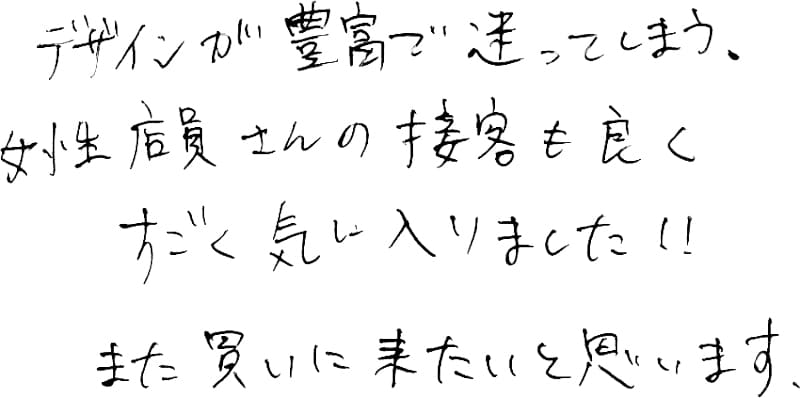 デザインが豊富で迷ってしまう。
女性店員さんの接客も良く
すごく気に入りました!!
また買いに来たいと思います。